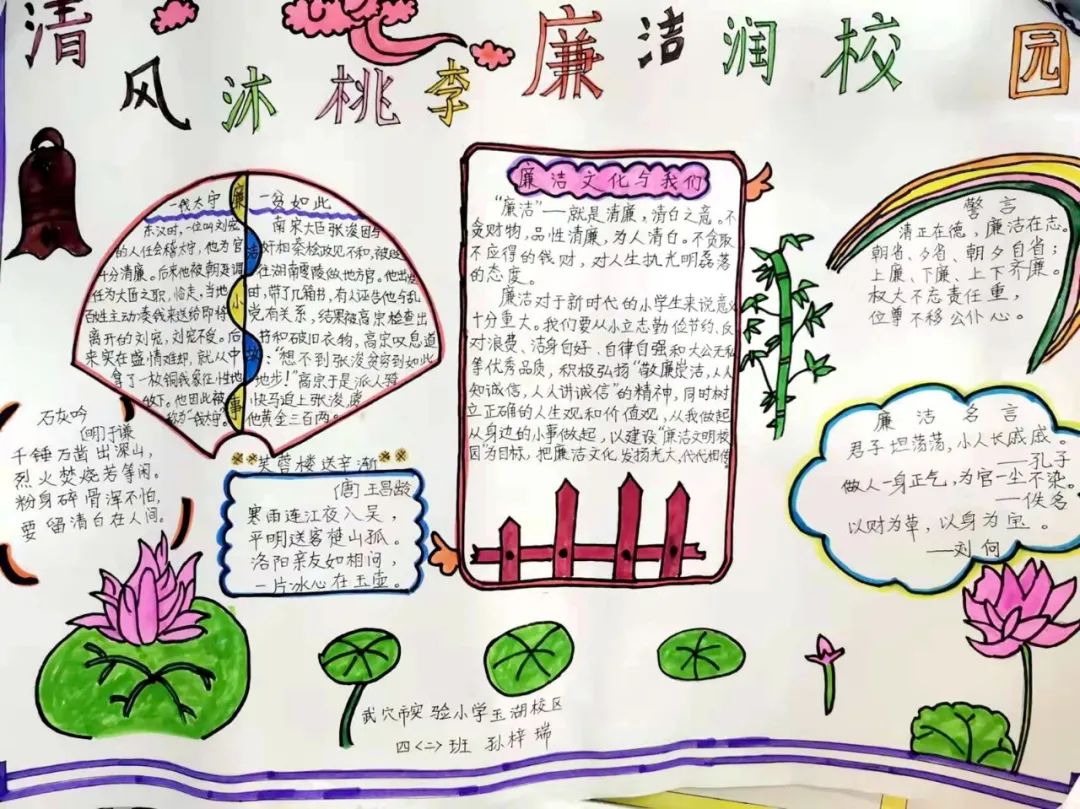 清风沐桃李廉洁润校园
廉洁小故事
一钱太守
东汉时,一位叫刘宠
的人任会稽太守,他为官
十分清廉。后来他被朝廷调
任为大匠之职,临走,当地
百姓主动凑钱来送给即将
离开的刘宠,刘宠不受。后
来实在盛情难却,就从中
拿了一枚铜钱象征性地
收下。他因此被
称为“一钱太守”
一贫如此
南宋大臣张浚因与
奸相秦桧政见不和,被贬
往湖南零陵做地方官。他出发
时,带了几箱书,有人诬告他与乱
党有关系,结果被高宗检查出
书和破旧衣物,高宗叹息道
:“想不到张浚贫穷到如此
地步!”高宗于是派人骑
快马追上张浚,
他黄金三百两。
廉洁文化与我们
“廉洁”——就是清廉,清白之意。不
贪财物,品性清廉,为人清白。不贪取
不应得的钱财,对人生执光明磊落
的态度。
廉洁对于新时代的小学生来说意义
十分重大。我们要从小立志勤俭节约、反
对浪费、洁身自好、自律自强和大公无私
等优秀品质,积极弘扬“敬廉崇洁,人人
知诚信,人人讲诚信”的精神,同时树
立正确的人生观和价值观,从我做起
从身边的小事做起,以建设“廉洁文明校
园”为目标,把廉洁文化发扬光大,代代相传
警言
清正在德,廉洁在志。
朝省、夕省、朝夕自省;
上廉、下廉、上下齐廉。
权大不忘责任重,
位尊不移公仆心。
石灰吟
[明]于谦
千锤万凿出深山,
烈火焚烧若等闲。
粉身碎骨浑不怕,
要留清白在人间。
芙蓉楼送辛渐
[唐]王昌龄
寒雨连江夜入吴,
平明送客楚山孤。
洛阳亲友如相问,
一片冰心在玉壶。
廉洁名言
君子坦荡荡,小人长戚戚。
——孔子
做人一身正气,为官一尘不染。
——佚名
以财为草,以身为宝。
——刘向
武穴市实验小学玉湖校区
四<二>班 孙梓瑞